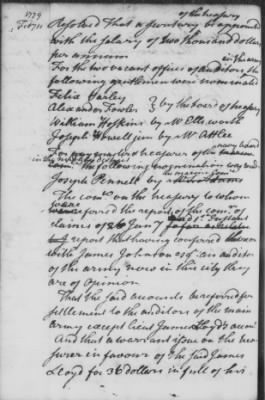 1779
Feb 11
of the treasury
Resolved That a secretary be appointed
with the salary of two thousand dollars
per annum
in the army
For the two vacant offices of auditors, the
following gentlemen were nominated
Felix Farley
Alexander Fowler } by the board of treasury
William Hoskins by Mr Ellsworth
Joseph Howell jun by Mr Atlee
For
the following nomination was made
Joseph Pennell by
The comee on the treasury to whom
were referred the report of the comee of
claims of 26 Jany
report that having conferred
with James Johnston esqr an auditor
of the army now in this city they
are of opinion
That the said accounts be referred for
settlement to the auditors of the main
army except lieut James Lloyd's account
And that a warrant issue on the trea
surer in favour of the said James
Lloyd for 36 dollars in full of his